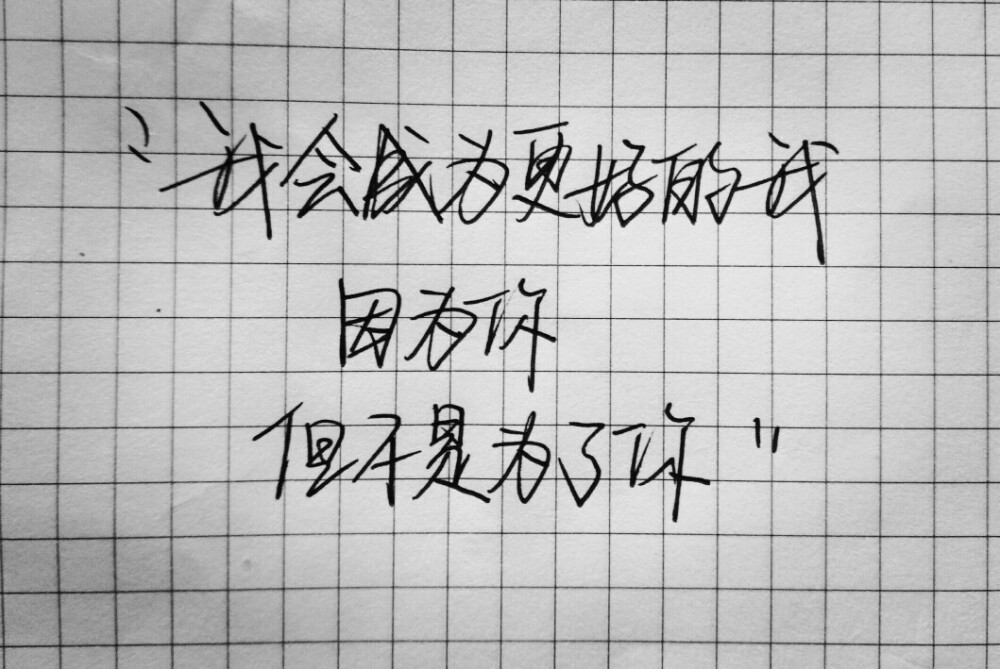 "我会成为更好的我
因为你
但不是为了你"